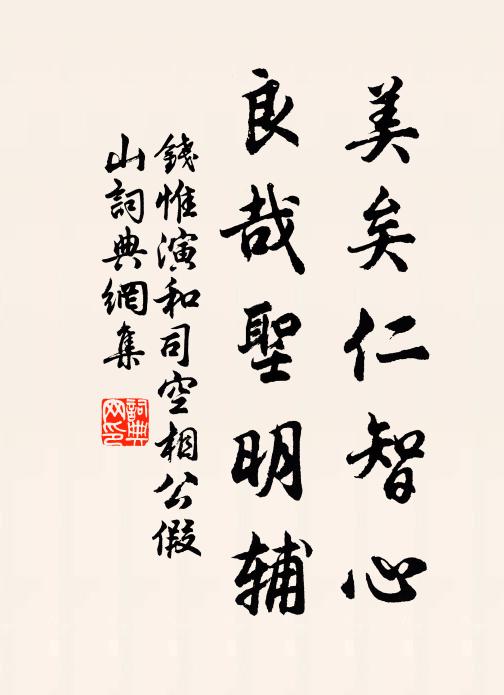 美矣仁智心
良哉聖明辅
錢惟演和司空相公假
山詞典網集
詞典
网印